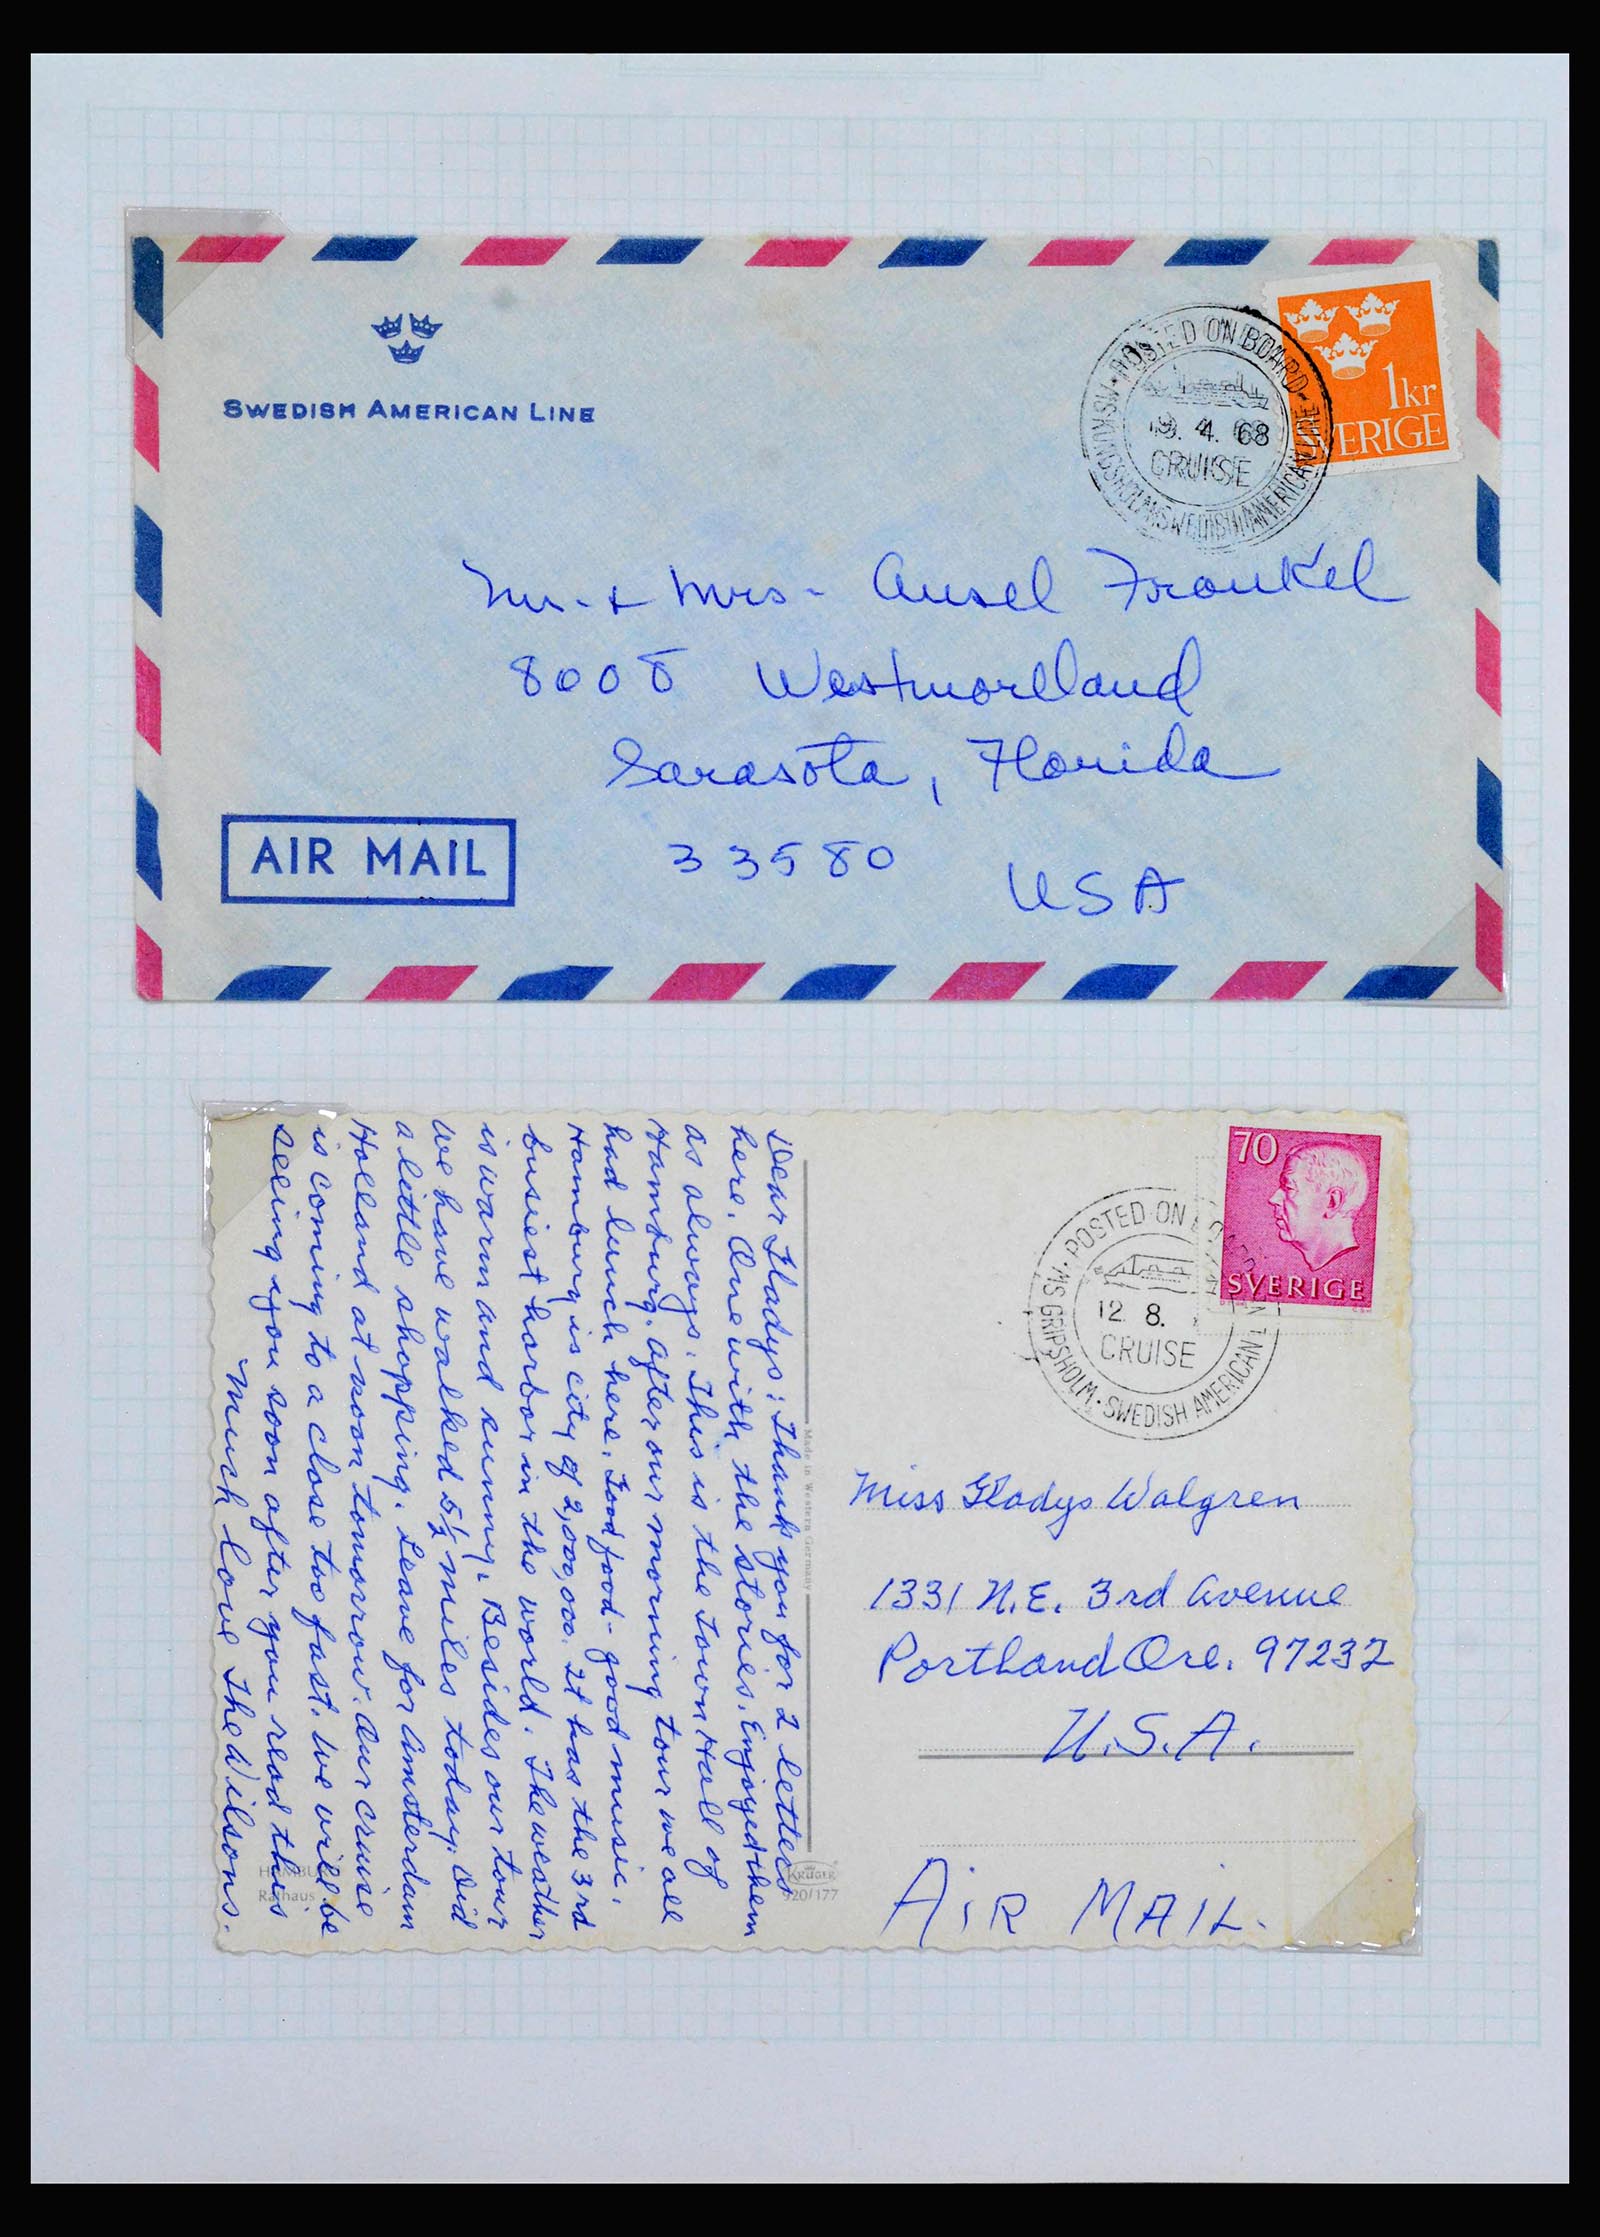 SWEDISH AMERICAN LINE
POSTED ON BOARD
9. 4. 68
CRUISE
MS KUNGSHOLM SWEDISH AMERICAN LINE
1kr
SVERIGE
Mr. & Mrs. Ansel Frankel
8008 Westmoreland
Sarasota, Florida
33580
USA
AIR MAIL
Dear Gladys: Thank you for 2 letters
here. One with the stories. Enjoyed them
as always. This is the Town Hall of
Hamburg. After our morning tour we all
had lunch here. Good food - good music.
Hamburg is city of 2,000,000. It has the 3rd
busiest harbor in the world. The weather
is warm and sunny. Besides our tour
we have walked 5½ miles today. Did
a little shopping. Leave for Amsterdam
Holland at noon tomorrow. Our cruise
is coming to a close too fast. We will be
seeing you soon after you read this
Much love The Wilsons.
Made in Western Germany
HAMBURG
Rathaus
KRÜGER
920/177
70
SVERIGE
POSTED ON
12 8.
CRUISE
SW. GRIPSHOLM · SWEDISH AMERICAN
Miss Gladys Walgren
1331 N.E. 3rd Avenue
Portland Ore. 97232
U.S.A.
AIR MAIL.